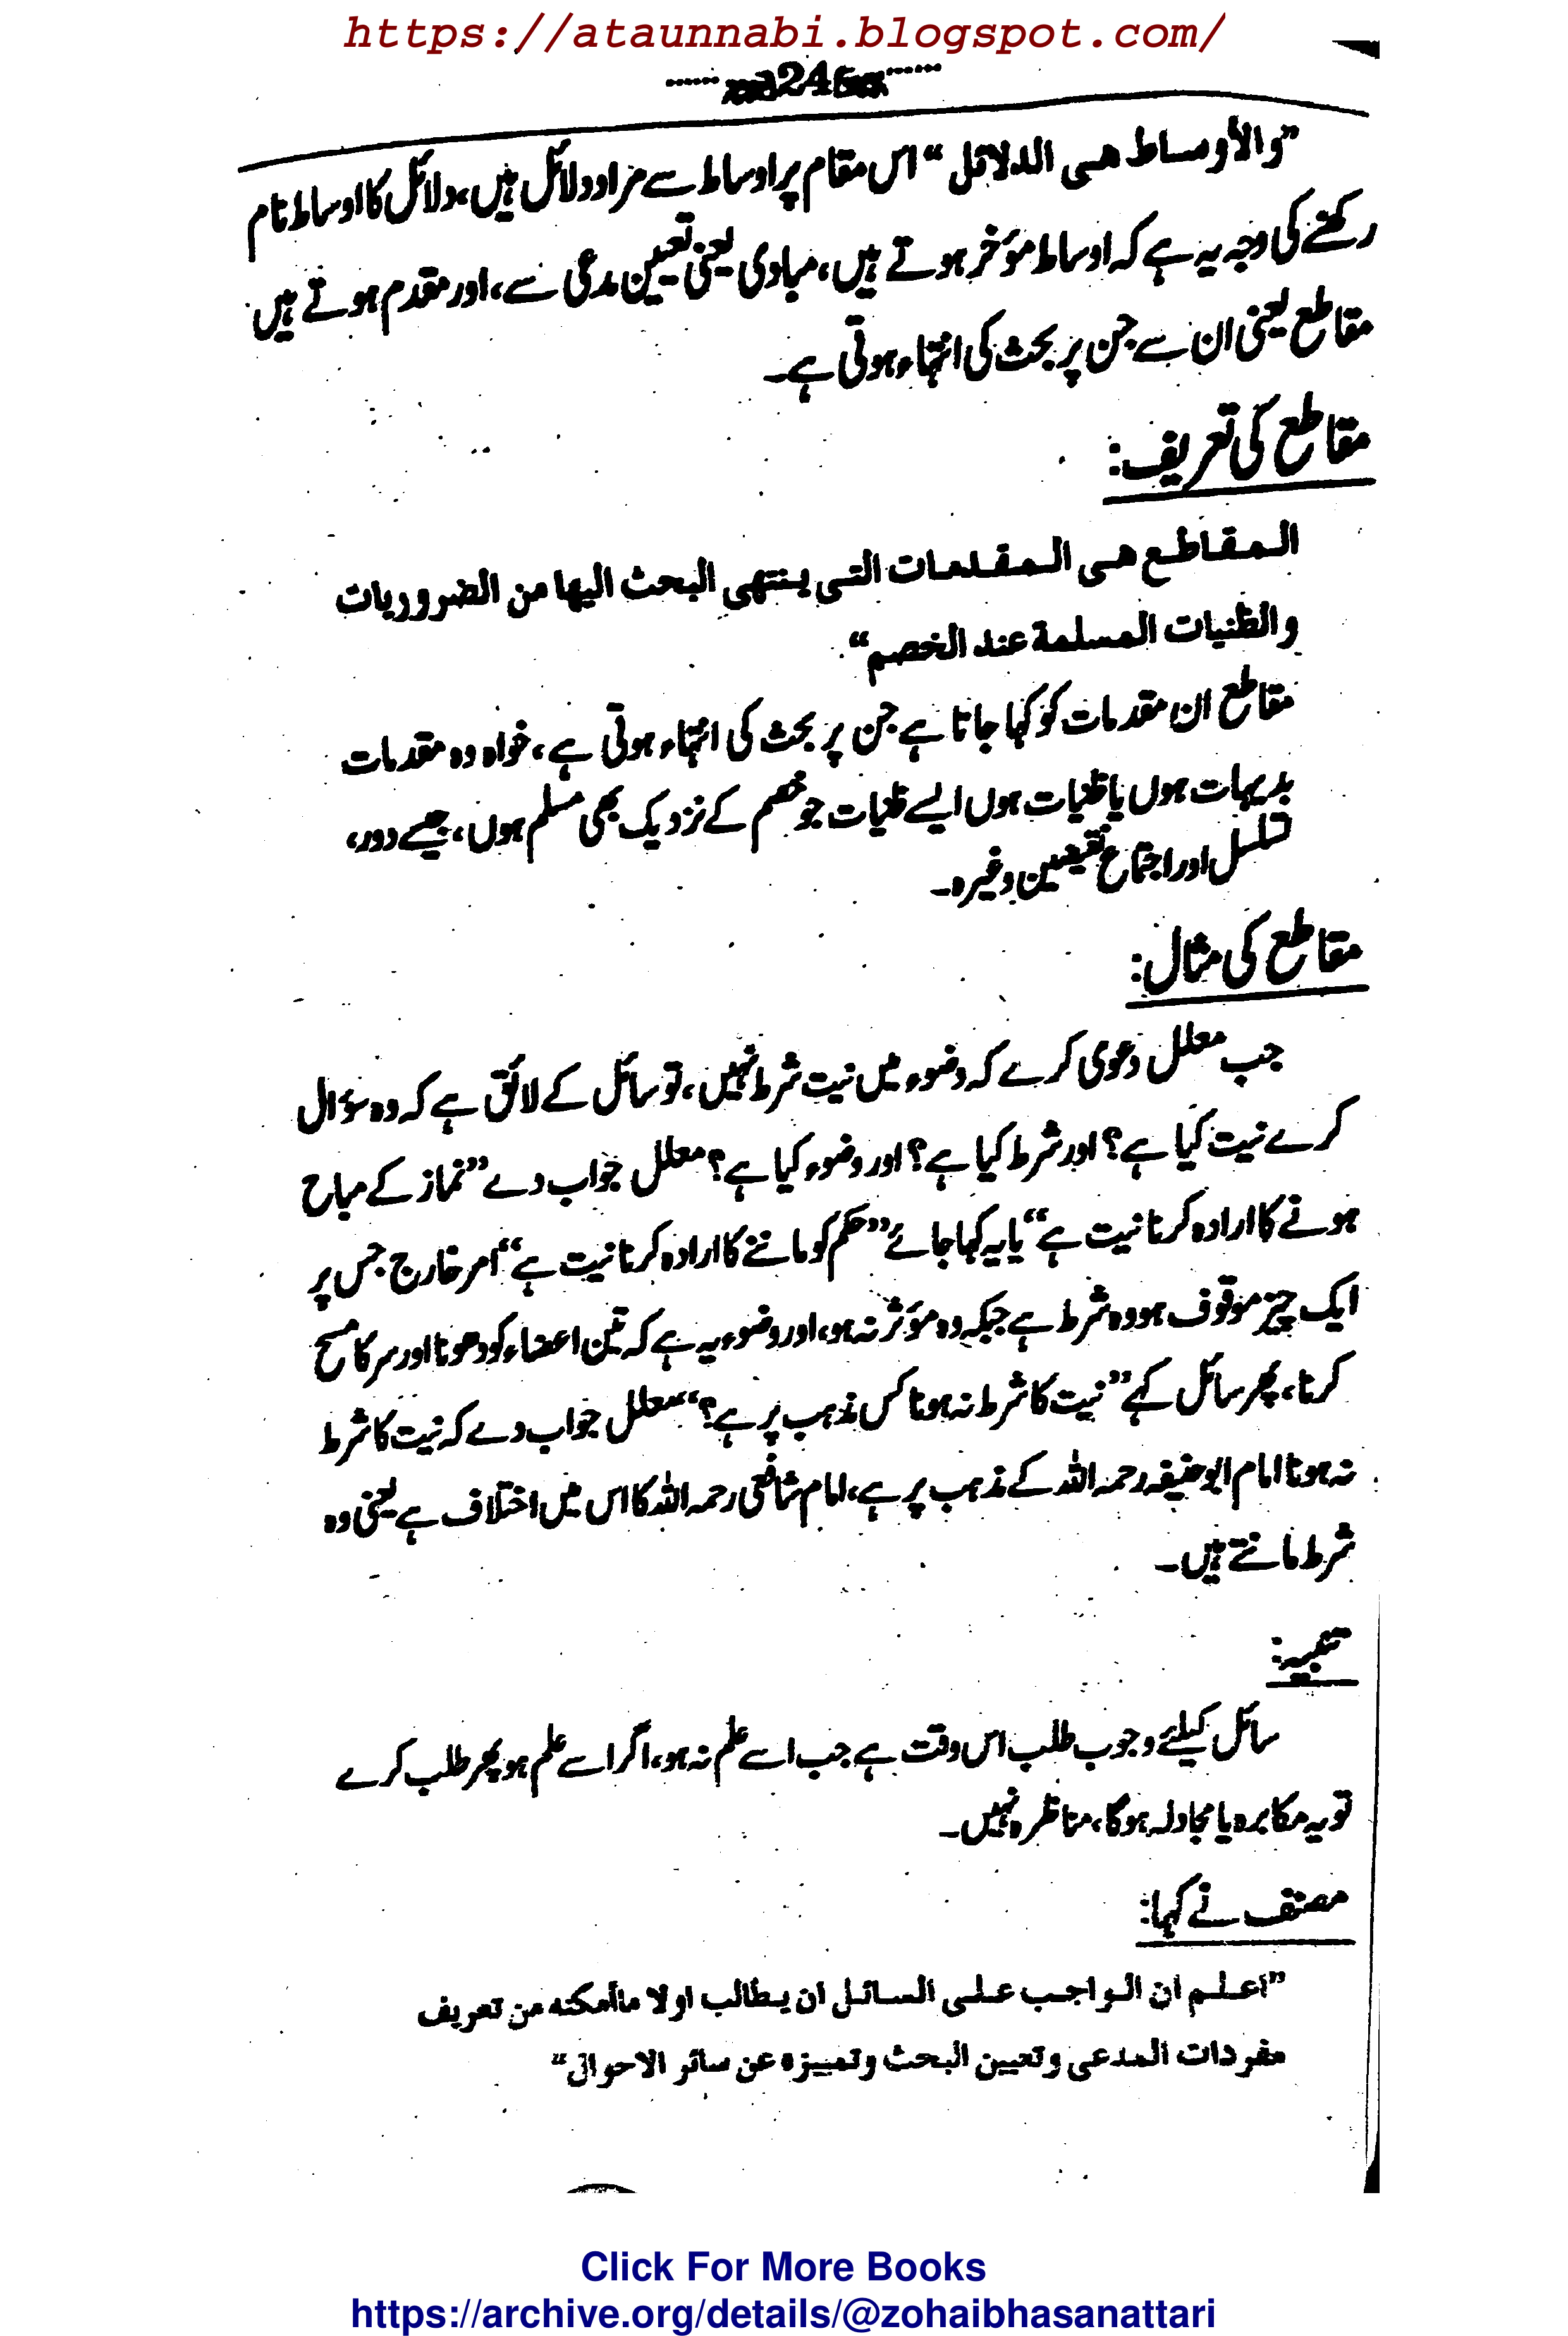 https://ataunnabi.blogspot.com/
246
”والأوساط هی الدلائل“ اس مقام پر اوساط سے مراد دلائل ہیں، دلائل کا اوساط نام
رکھنے کی وجہ یہ ہے کہ اوساط مؤخر ہوتے ہیں، مبادی یعنی تعیین مدعی سے، اور مقدم ہوتے ہیں
مقاطع یعنی ان سے جن پر بحث کی انتہاء ہوتی ہے۔
مقاطع کی تعریف:
المقاطع هی المقدمات التی ینتهی البحث الیها من الضروریات
والظنیات المسلمة عند الخصم“
مقاطع ان مقدمات کو کہا جاتا ہے جن پر بحث کی انتہاء ہوتی ہے، خواہ وہ مقدمات
بدیہات ہوں یا ظنیات ہوں ایسے ظنیات جو خصم کے نزدیک بھی مسلم ہوں، جیسے دور،
تسلسل اور اجتماع نقیضین وغیرہ۔
مقاطع کی مثال:
جب معلل دعوی کرے کہ وضوء میں نیت شرط نہیں، تو سائل کے لائق ہے کہ وہ سؤال
کرے نیت کیا ہے؟ اور شرط کیا ہے؟ اور وضوء کیا ہے؟ معلل جواب دے ”نماز کے مباح
ہونے کا ارادہ کرنا نیت ہے“ یا یہ کہا جائے ”حکم کو ماننے کا ارادہ کرنا نیت ہے“ امر خارج جس پر
ایک چیز موقوف ہو وہ شرط ہے جبکہ وہ مؤثر نہ ہو، اور وضوء یہ ہے کہ تین اعضاء کو دھونا اور سر کا مسح
کرنا، پھر سائل کہے ”نیت کا شرط نہ ہونا کس مذہب پر ہے؟“ معلل جواب دے کہ نیت کا شرط
نہ ہونا امام ابوحنیفہ رحمہ اللہ کے مذہب پر ہے، امام شافعی رحمہ اللہ کا اس میں اختلاف ہے یعنی وہ
شرط مانتے ہیں۔
تنبیہ:
سائل کیلئے وجوب طلب اس وقت ہے جب اسے علم نہ ہو، اگر اسے علم ہو پھر طلب کرے
تو یہ مکابرہ یا مجادلہ ہوگا، مناظرہ نہیں۔
مصنف نے کہا:
”اعلم ان الواجب علی السائل ان یطالب اولا ماأمکنه من تعریف
مفردات المدعی وتعیین البحث وتمییزه عن سائر الاحوال“
Click For More Books
https://archive.org/details/@zohaibhasanattari